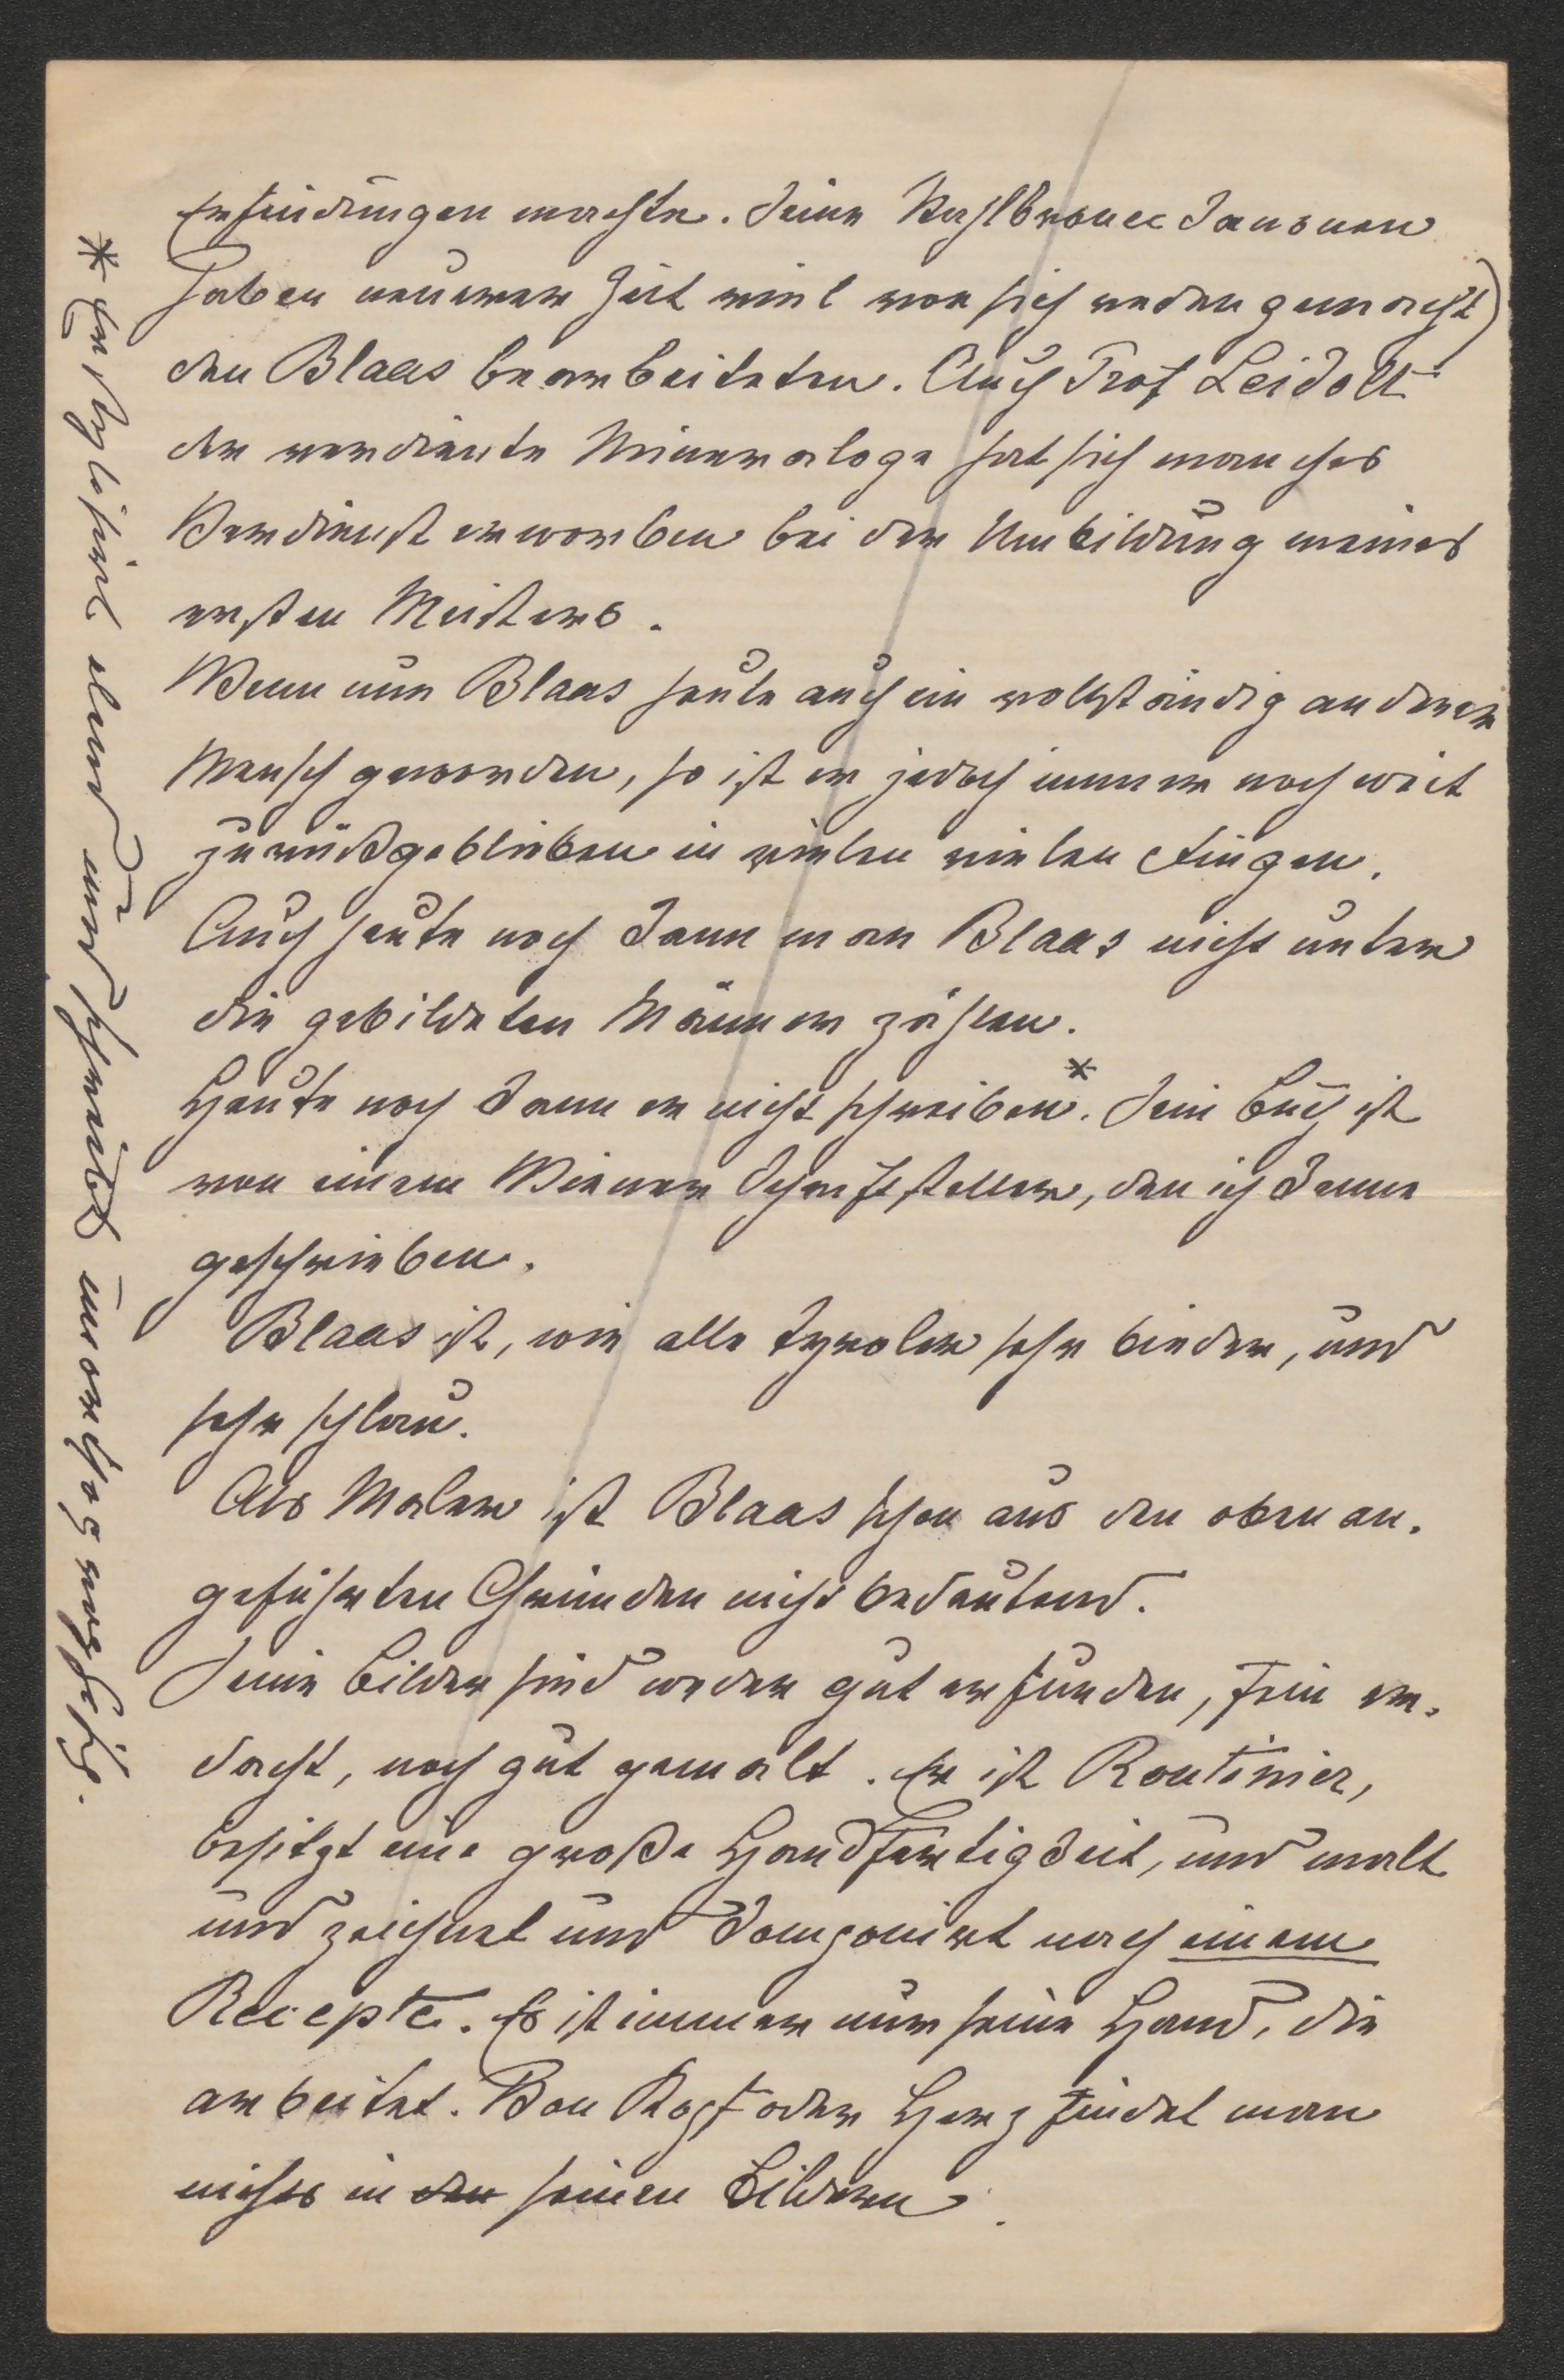 Erfindungen machte. Seine Stahlbronce Kanonen
haben neuerer Zeit viel von sich reden gemacht)
den Blaas bearbeiteten. Auch Prof Leidolt
der verdiente Mineraloge hat sich manches
Verdienst erworben bei der Umbildung meines
ersten Meisters.
Wenn nun Blaas heute auch ein vollständig anderer
Mensch geworden, so ist er jedoch immer noch weit
zurückgeblieben in vielen vielen Dingen.
Auch heute noch kann man Blaas nicht unter
die gebildeten Männer zählen.
Heute noch kann er nicht schreiben*. Sein Buch ist
von einem Wiener Schriftsteller, den ich kenne
geschrieben.
Blaas ist, wie alle Tyroler sehr bieder, und
sehr schlau.
Als Maler ist Blaas schon aus den oben an-
geführten Gründen nicht bedeutend.
Seine Bilder sind weder gut erfunden, fein er-
dacht, noch gut gemalt. Er ist Routinier,
besitzt eine große Handfertigkeit, und malt
und zeichnet und komponirt nach einem
Recepte. Es ist immer nur seine Hand, die
arbeitet. Von Kopf oder Herz findet man
nichts in den seinen Bildern.
* Er stylisirt elend und schreibt unorthographisch.